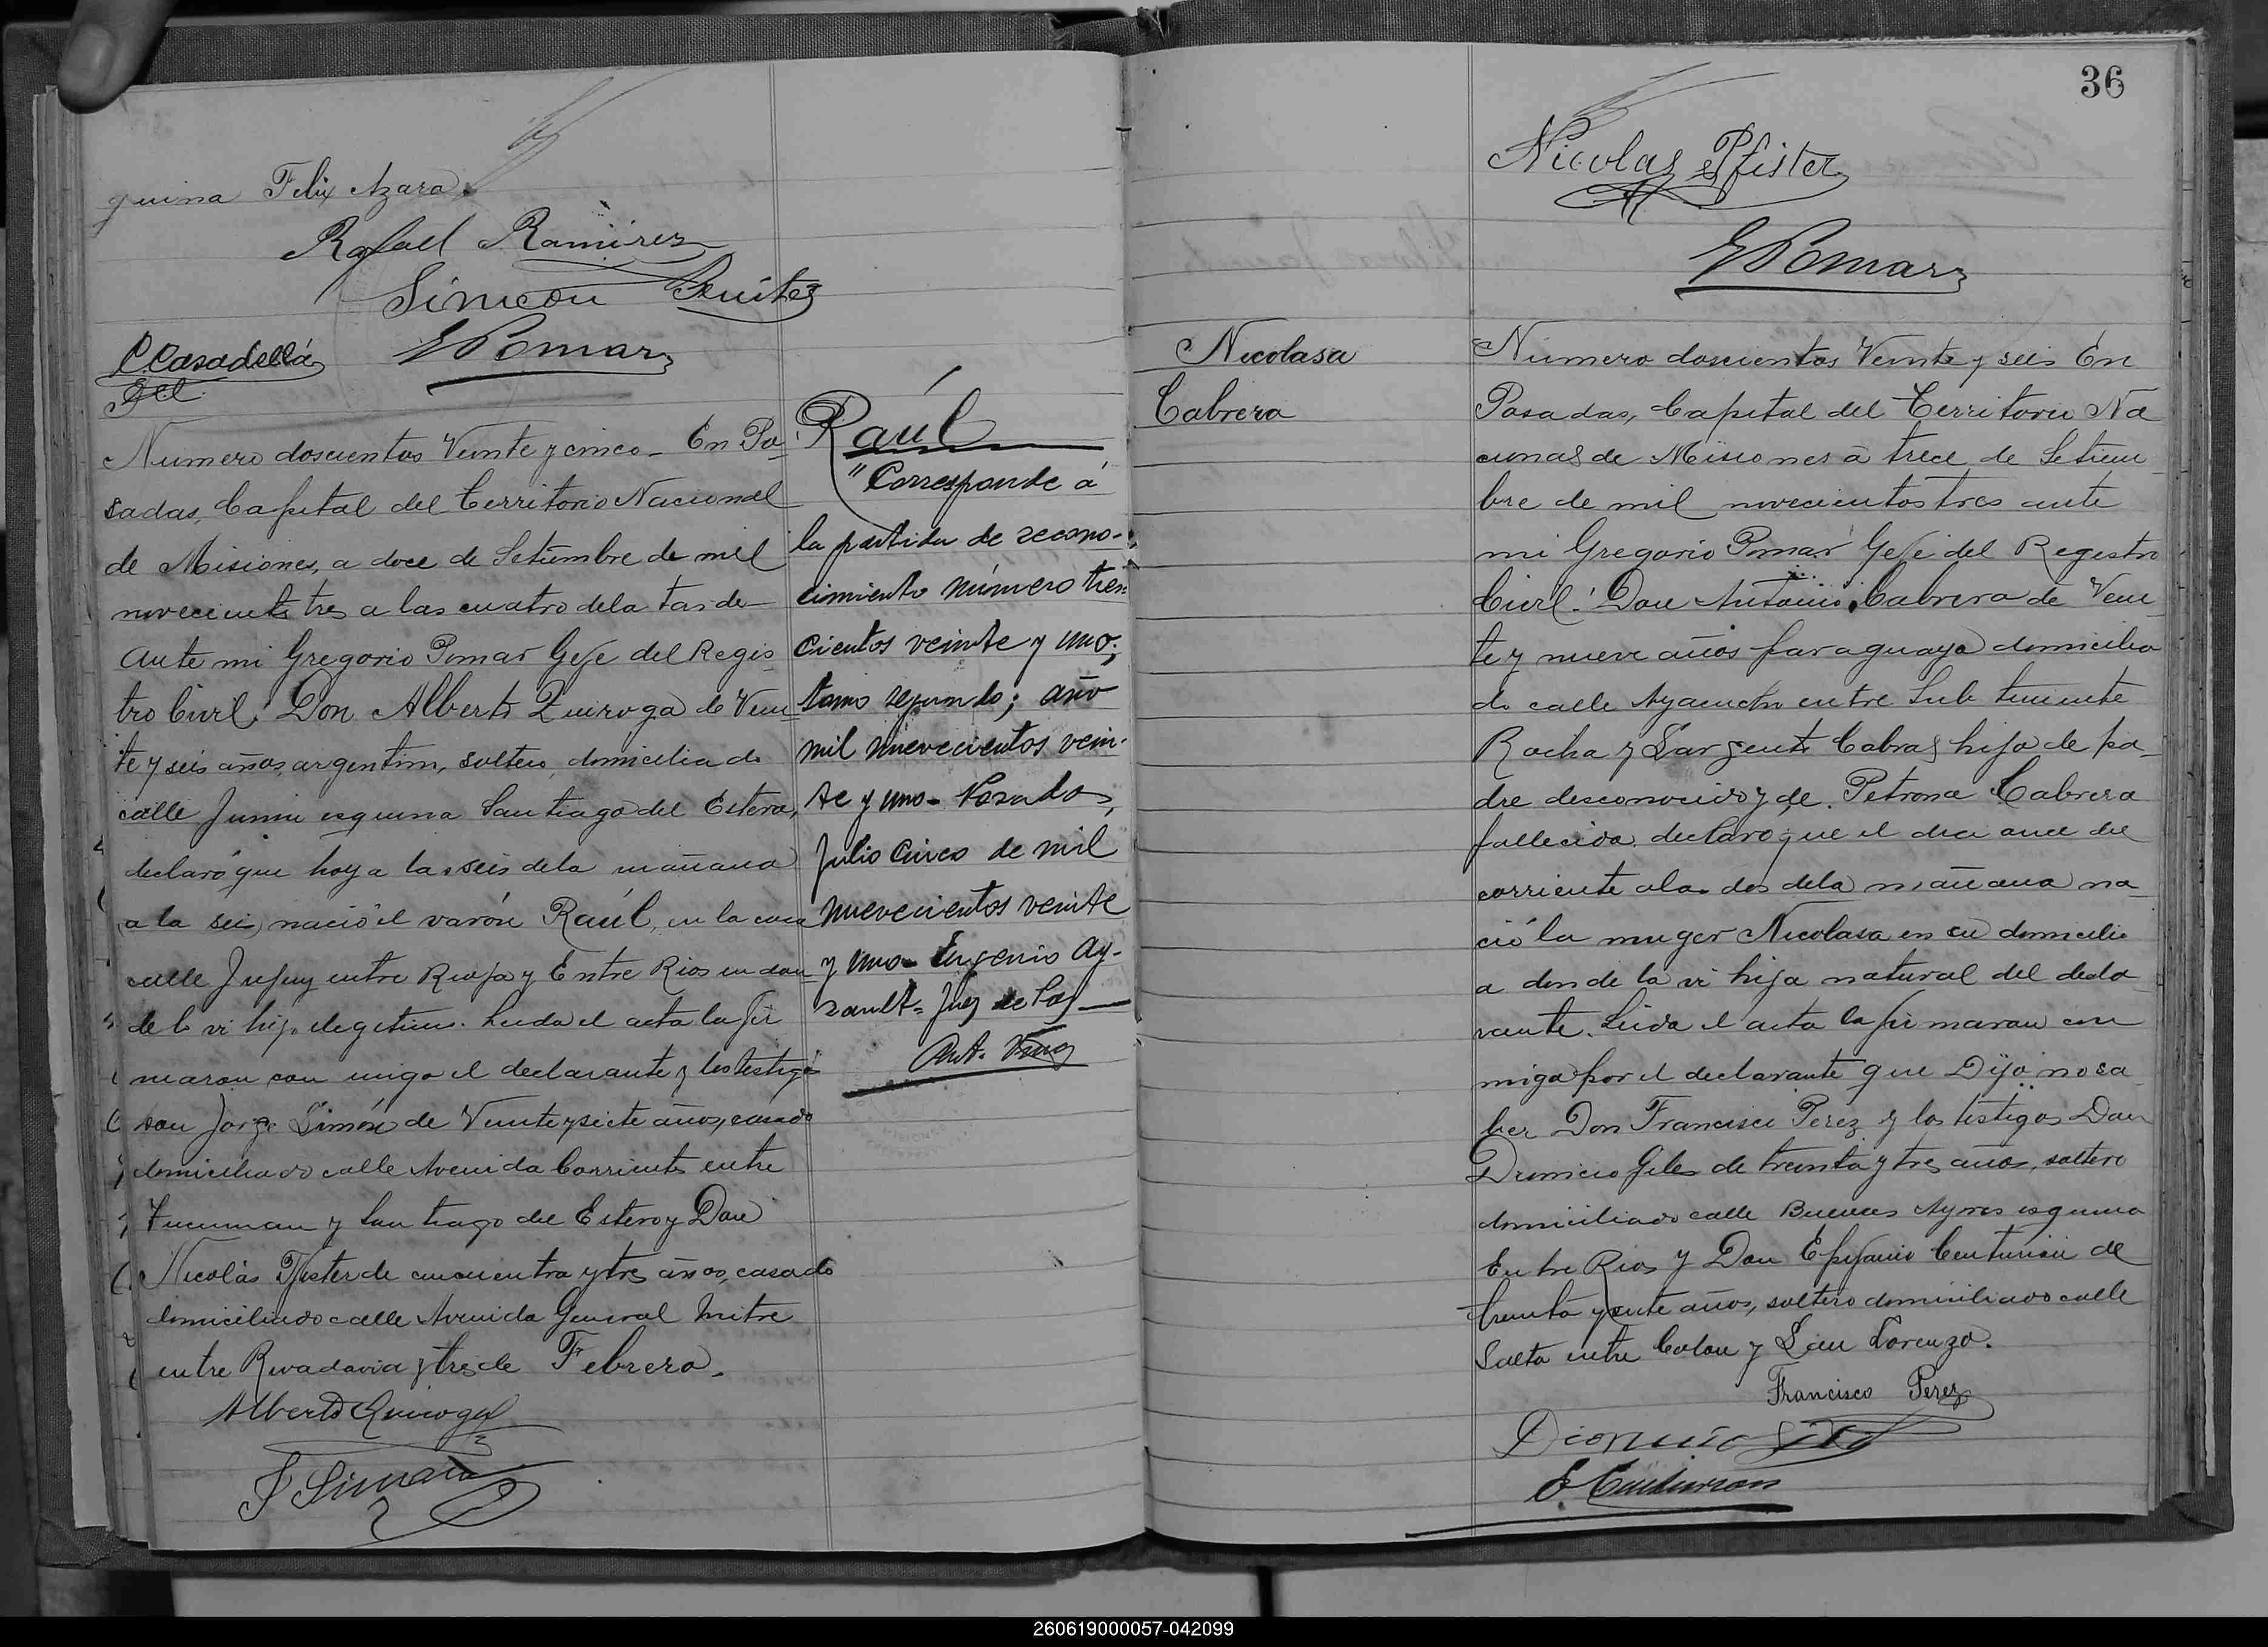 quina Felix Azara.
Rafael Ramirez
Simeon Benitez
P Casadellá
EPomar
Numero doscientos Veinte y cinco - En Po
sadas, Capital del Territorio Nacional
de Misiones, a doce de Setiembre de mil
novecientos tres a las cuatro dela tarde
ante mi Gregorio Pomar Gefe del Regis
tro Civil: Don Alberto Quiroga de Vein
te y seis años, argentino, soltero, domiciliado
calle Junin esquina Santiago del Estero,
declaró que hoy a las seis dela mañana
(a la seis) nació el varón Raúl, en la casa
calle Jujuy entre Rioja y Entre Rios en don
de lo vi hijo ilegitimo. Leida el acta la fir
maron con migo el declarante y los testigos
don Jorge Simón de Veinte y siete años, casado
domiciliado calle Avenida Corrientes entre
Tucuman y Santiago del Estero y Don
Nicolás Pfister de cincuenta y tres años, casado
domiciliado calle Avenida General Mitre
entre Rivadavia y tres de Febrero.
Alberto Quiroga
J Simón
Raúl
"Corresponde á
la partida de recono-
cimiento número tres
cientos veinte y uno;
tomo segundo; año
mil nuevecientos vein-
te y uno - Posadas,
Julio cinco de mil
nuevecientos veinte
y uno - Eugenio Ay-
rault = Juez de Paz
36
Nicolas Pfister
EPomar
Nicolasa
Cabrera
Numero doscientos Veinte y seis En
Posadas, Capital del Territorio Na
cional de Misiones a trece de Setiem
bre de mil novecientos tres ante
mi Gregorio Pomar Gefe del Registro
Civil: Don Antonio Cabrera de Vein
te y nueve años paraguayo domicilia
do calle Ayacucho entre Sub teniente
Rocha y Sargento Cabral hijo de pa
dre desconocido y de Petrona Cabrera
fallecida declaro que el dia once del
corriente a las dos dela mañana na
ció la muger Nicolasa en su domicilio
a donde la vi hija natural del decla
rante. Leida el acta la firmaron con
migo por el declarante que Dijo no sa
ber Don Francisco Perez y los testigos Don
Dionicio Giles de treinta y tres años, soltero
domiciliado calle Buenos Ayres esquina
Entre Rios y Don Epifanio Centurión de
treinta y siete años, soltero domiciliado calle
Salta entre Colon y San Lorenzo.
Francisco Perez
Dionicio
E. Centurion
260619000057-042099